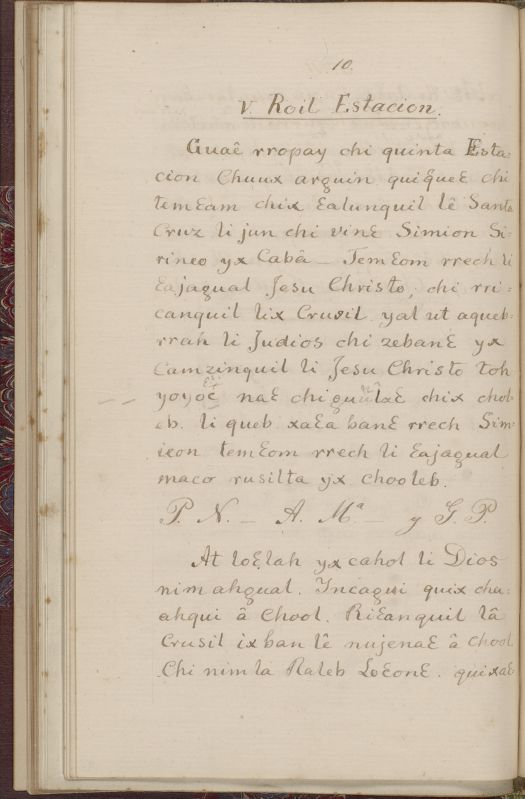 10.
V. Roil Estacion.
Guaê rropay chi quinta Esta=
cion Chuux arguin quiɛ̃ueɛ chi
temɛam chix ɛalunquil lê Santa
Cruz li jun chi vinɛ Simion Si=
rineo yx Cabâ _ Temɛom rrech li
ɛajagual Jesu Christo, chi rri=
canquil lix Crusil yal ut aqueb=
rrah li Judios chi zebanɛ yx
Camzinquil li Jesu Christo toh
naɛ chix chol=
eb. li queb xaɛa banɛ rrech Sim=
ieon temɛom rrech li ɛajagual
maco rusilta yx chooleb.
P. N. _ A. Mª _ y G. P.
At loɛlah yx cahol li Dios
nim ahgual. Yncagui quix cha=
ahqui â Chool. Riɛanquil lâ
Crusil ix ban lê nujenaɛ â chool
Chi nim la Raleb Loɛonɛ. quixaɛ